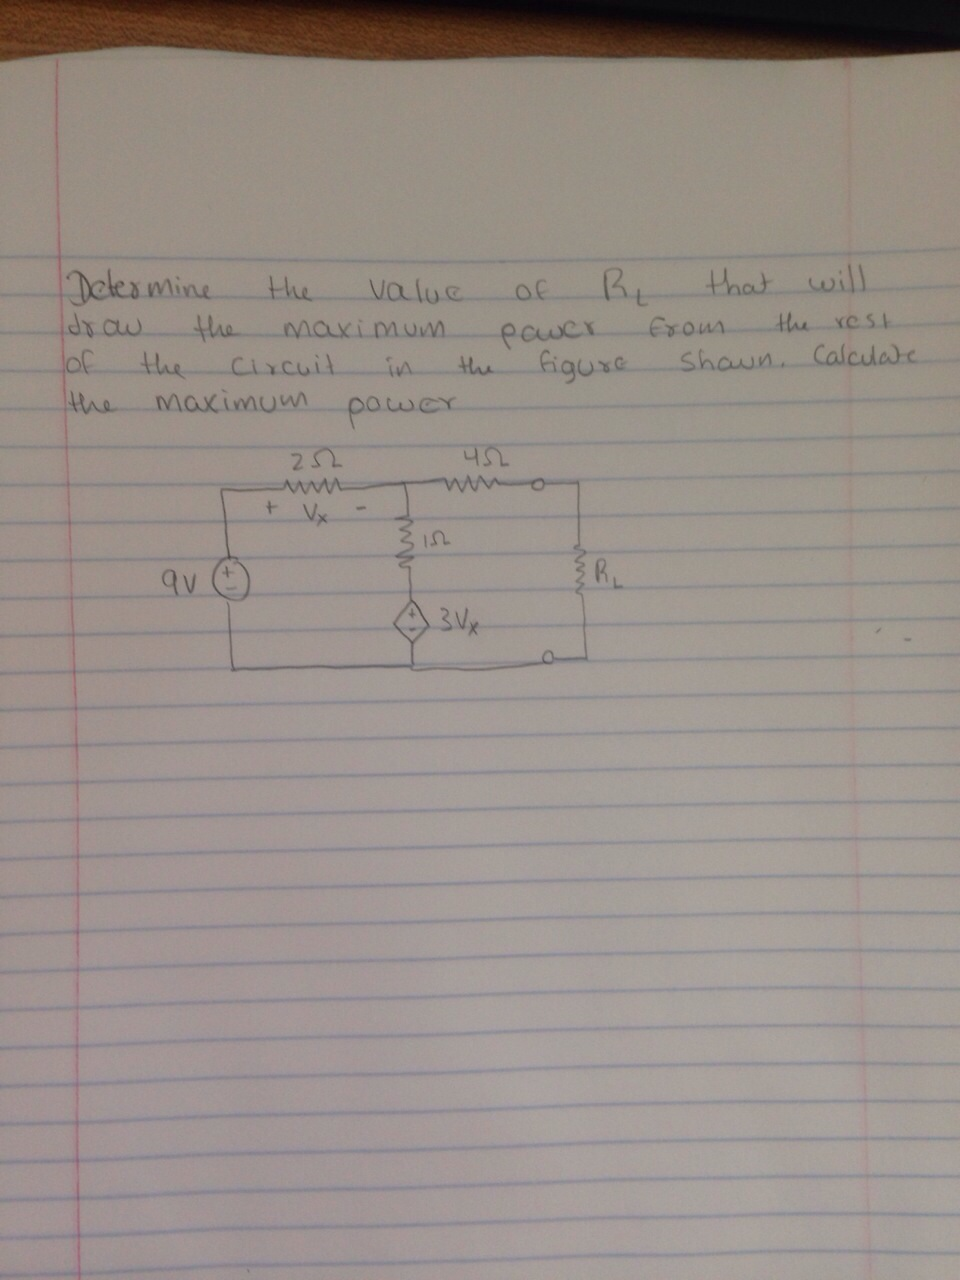 Determine the value of RL that will
draw the maximum power from the rest
of the circuit in the figure shown. Calculate
the maximum power
2Ω 4Ω
+ Vx -
1Ω
9V + - RL
+ - 3Vx